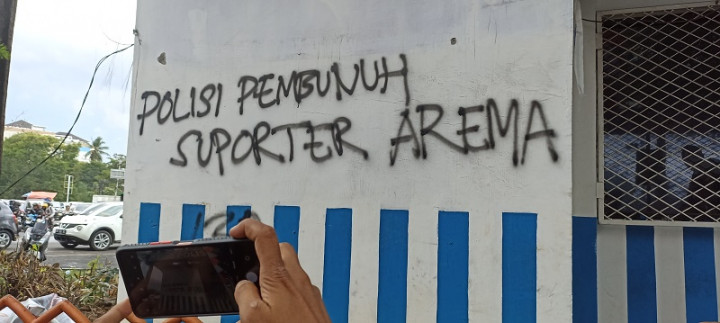 POLISI PEMBUNUH
SUPORTER AREMA